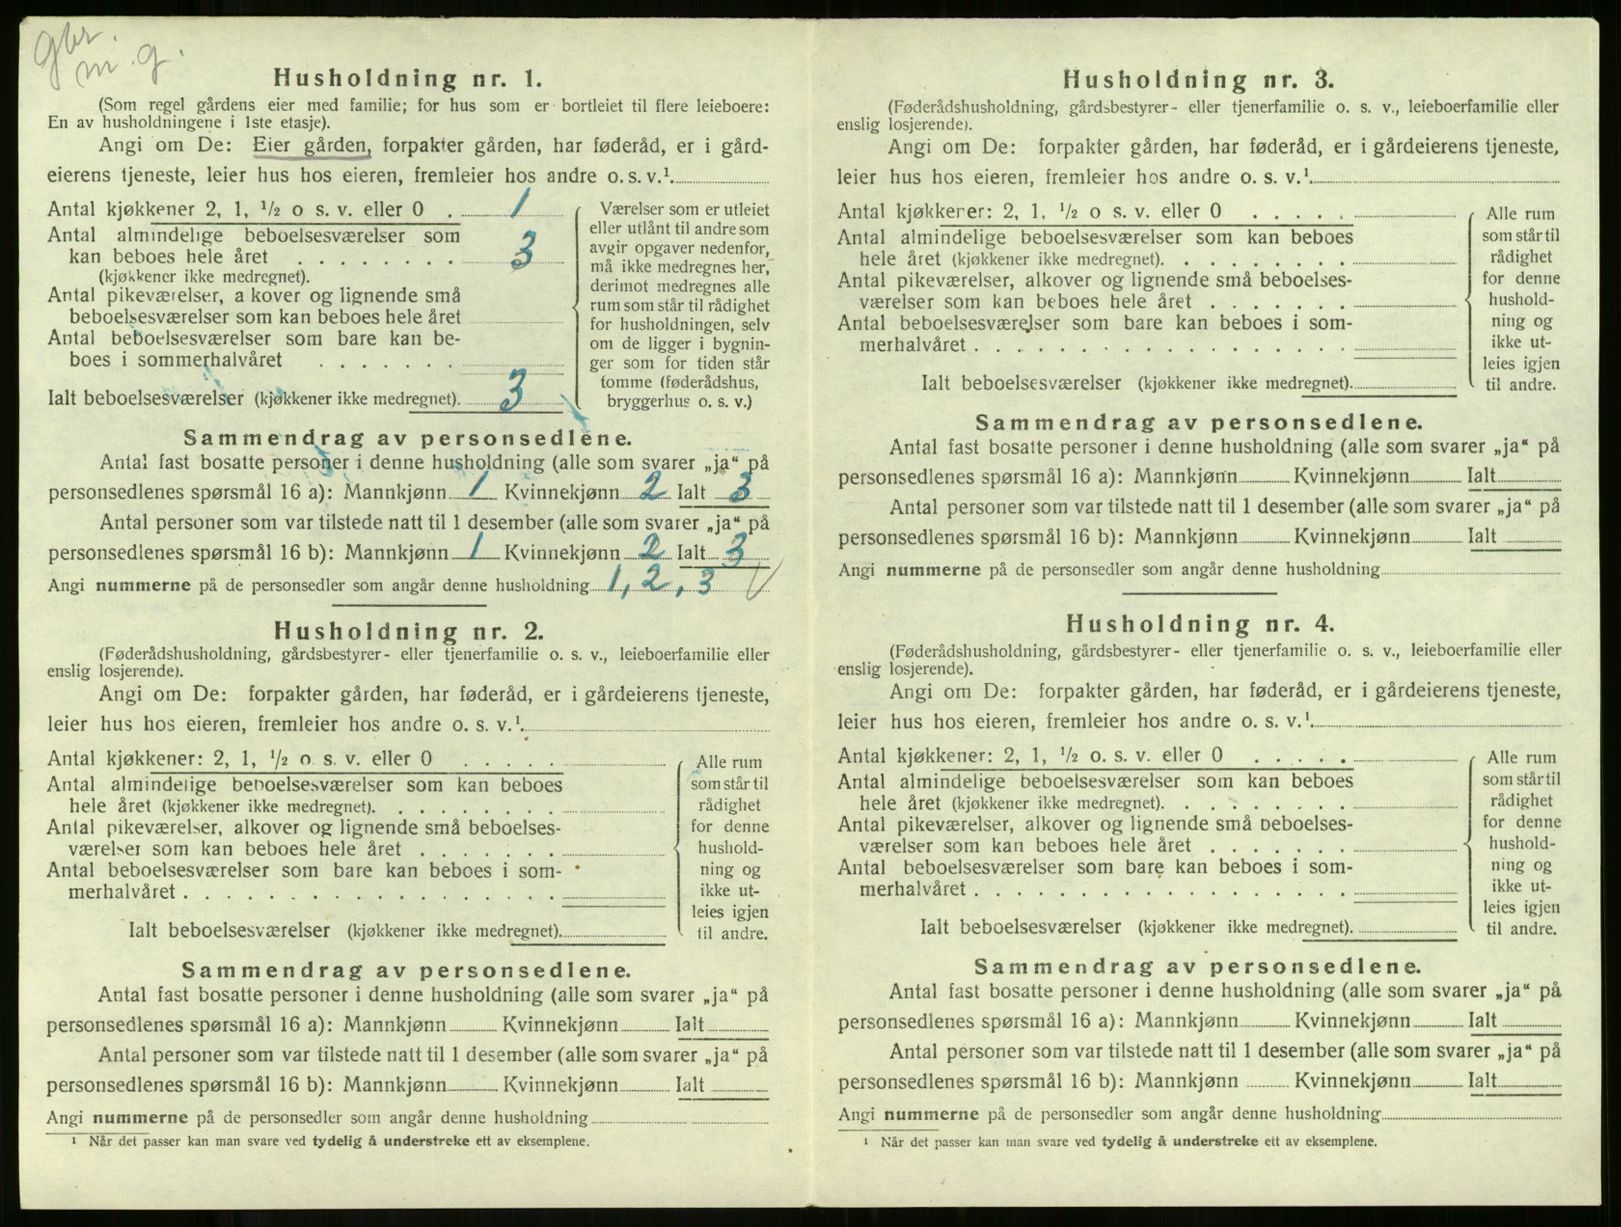 gbr.
m. g.
Husholdning nr. 1.
(Som regel gårdens eier med familie; for hus som er bortleiet til flere leieboere:
En av husholdningene i 1ste etasje).
Angi om De: Eier gården, forpakter gården, har føderåd, er i gård-
eierens tjeneste, leier hus hos eieren, fremleier hos andre o. s. v.¹
Antal kjøkkener 2, 1, ½ o s. v. eller 0 . 1
Antal almindelige beboelsesværelser som
kan beboes hele året . . . . . . . . 3
(kjøkkener ikke medregnet).
Antal pikeværelser, a kover og lignende små
beboelsesværelser som kan beboes hele året
Antal beboelsesværelser som bare kan be-
boes i sommerhalvåret . . . . . . .
Ialt beboelsesværelser (kjøkkener ikke medregnet). 3
Værelser som er utleiet
eller utlånt til andre som
avgir opgaver nedenfor,
må ikke medregnes her,
derimot medregnes alle
rum som står til rådighet
for husholdningen, selv
om de ligger i bygnin-
ger som for tiden står
tomme (føderådshus,
bryggerhus o. s. v.)
Sammendrag av personsedlene.
Antal fast bosatte personer i denne husholdning (alle som svarer „ja“ på
personsedlenes spørsmål 16 a): Mannkjønn 1 Kvinnekjønn 2 Ialt 3
Antal personer som var tilstede natt til 1 desember (alle som svarer „ja“ på
personsedlenes spørsmål 16 b): Mannkjønn 1 Kvinnekjønn 2 Ialt 3
Angi nummerne på de personsedler som angår denne husholdning 1, 2, 3 √
Husholdning nr. 2.
(Føderådshusholdning, gårdsbestyrer- eller tjenerfamilie o. s. v., leieboerfamilie eller
enslig losjerende).
Angi om De: forpakter gården, har føderåd, er i gårdeierens tjeneste,
leier hus hos eieren, fremleier hos andre o. s. v.¹
Antal kjøkkener: 2, 1, ½ o. s. v. eller 0 . . . . .
Antal almindelige beboelsesværelser som kan beboes
hele året (kjøkkener ikke medregnet). . . . . . . .
Antal pikeværelser, alkover og lignende små beboelses-
værelser som kan beboes hele året . . . . . . .
Antal beboelsesværelser som bare kan beboes i som-
merhalvåret . . . . . . . . . . . . . . . . . .
Ialt beboelsesværelser (kjøkkener ikke medregnet).
Alle rum
som står til
rådighet
for denne
hushold-
ning og
ikke ut-
leies igjen
til andre.
Sammendrag av personsedlene.
Antal fast bosatte personer i denne husholdning (alle som svarer „ja“ på
personsedlenes spørsmål 16 a): Mannkjønn Kvinnekjønn Ialt
Antal personer som var tilstede natt til 1 desember (alle som svarer „ja“ på
personsedlenes spørsmål 16 b): Mannkjønn Kvinnekjønn Ialt
Angi nummerne på de personsedler som angår denne husholdning
¹ Når det passer kan man svare ved tydelig å understreke ett av eksemplene.
Husholdning nr. 3.
(Føderådshusholdning, gårdsbestyrer- eller tjenerfamilie o. s. v., leieboerfamilie eller
enslig losjerende).
Angi om De: forpakter gården, har føderåd, er i gårdeierens tjeneste,
leier hus hos eieren, fremleier hos andre o. s. v.¹
Antal kjøkkener: 2, 1, ½ o s. v. eller 0 . . . . .
Antal almindelige beboelsesværelser som kan beboes
hele året (kjøkkener ikke medregnet). . . . . . . .
Antal pikeværelser, alkover og lignende små beboelses-
værelser som kan beboes hele året . . . . . . .
Antal beboelsesværelser som bare kan beboes i som-
merhalvåret . . . . . . . . . . . . . . . . . .
Ialt beboelsesværelser (kjøkkener ikke medregnet).
Alle rum
som står til
rådighet
for denne
hushold-
ning og
ikke ut-
leies igjen
til andre.
Sammendrag av personsedlene.
Antal fast bosatte personer i denne husholdning (alle som svarer „ja“ på
personsedlenes spørsmål 16 a): Mannkjønn Kvinnekjønn Ialt
Antal personer som var tilstede natt til 1 desember (alle som svarer „ja“ på
personsedlenes spørsmål 16 b): Mannkjønn Kvinnekjønn Ialt
Angi nummerne på de personsedler som angår denne husholdning
Husholdning nr. 4.
(Føderådshusholdning, gårdsbestyrer- eller tjenerfamilie o. s. v., leieboerfamilie eller
enslig losjerende).
Angi om De: forpakter gården, har føderåd, er i gårdeierens tjeneste,
leier hus hos eieren, fremleier hos andre o. s. v.¹
Antal kjøkkener: 2, 1, ½ o. s. v. eller 0 . . . . .
Antal almindelige beboelsesværelser som kan beboes
hele året (kjøkkener ikke medregnet). . . . . . . .
Antal pikeværelser, alkover og lignende små beboelses-
værelser som kan beboes hele året . . . . . . .
Antal beboelsesværelser som bare kan beboes i som-
merhalvåret . . . . . . . . . . . . . . . . . .
Ialt beboelsesværelser (kjøkkener ikke medregnet).
Alle rum
som står til
rådighet
for denne
hushold-
ning og
ikke ut-
leies igjen
til andre.
Sammendrag av personsedlene.
Antal fast bosatte personer i denne husholdning (alle som svarer „ja“ på
personsedlenes spørsmål 16 a): Mannkjønn Kvinnekjønn Ialt
Antal personer som var tilstede natt til 1 desember (alle som svarer „ja“ på
personsedlenes spørsmål 16 b): Mannkjønn Kvinnekjønn Ialt
Angi nummerne på de personsedler som angår denne husholdning
¹ Når det passer kan man svare ved tydelig å understreke ett av eksemplene.